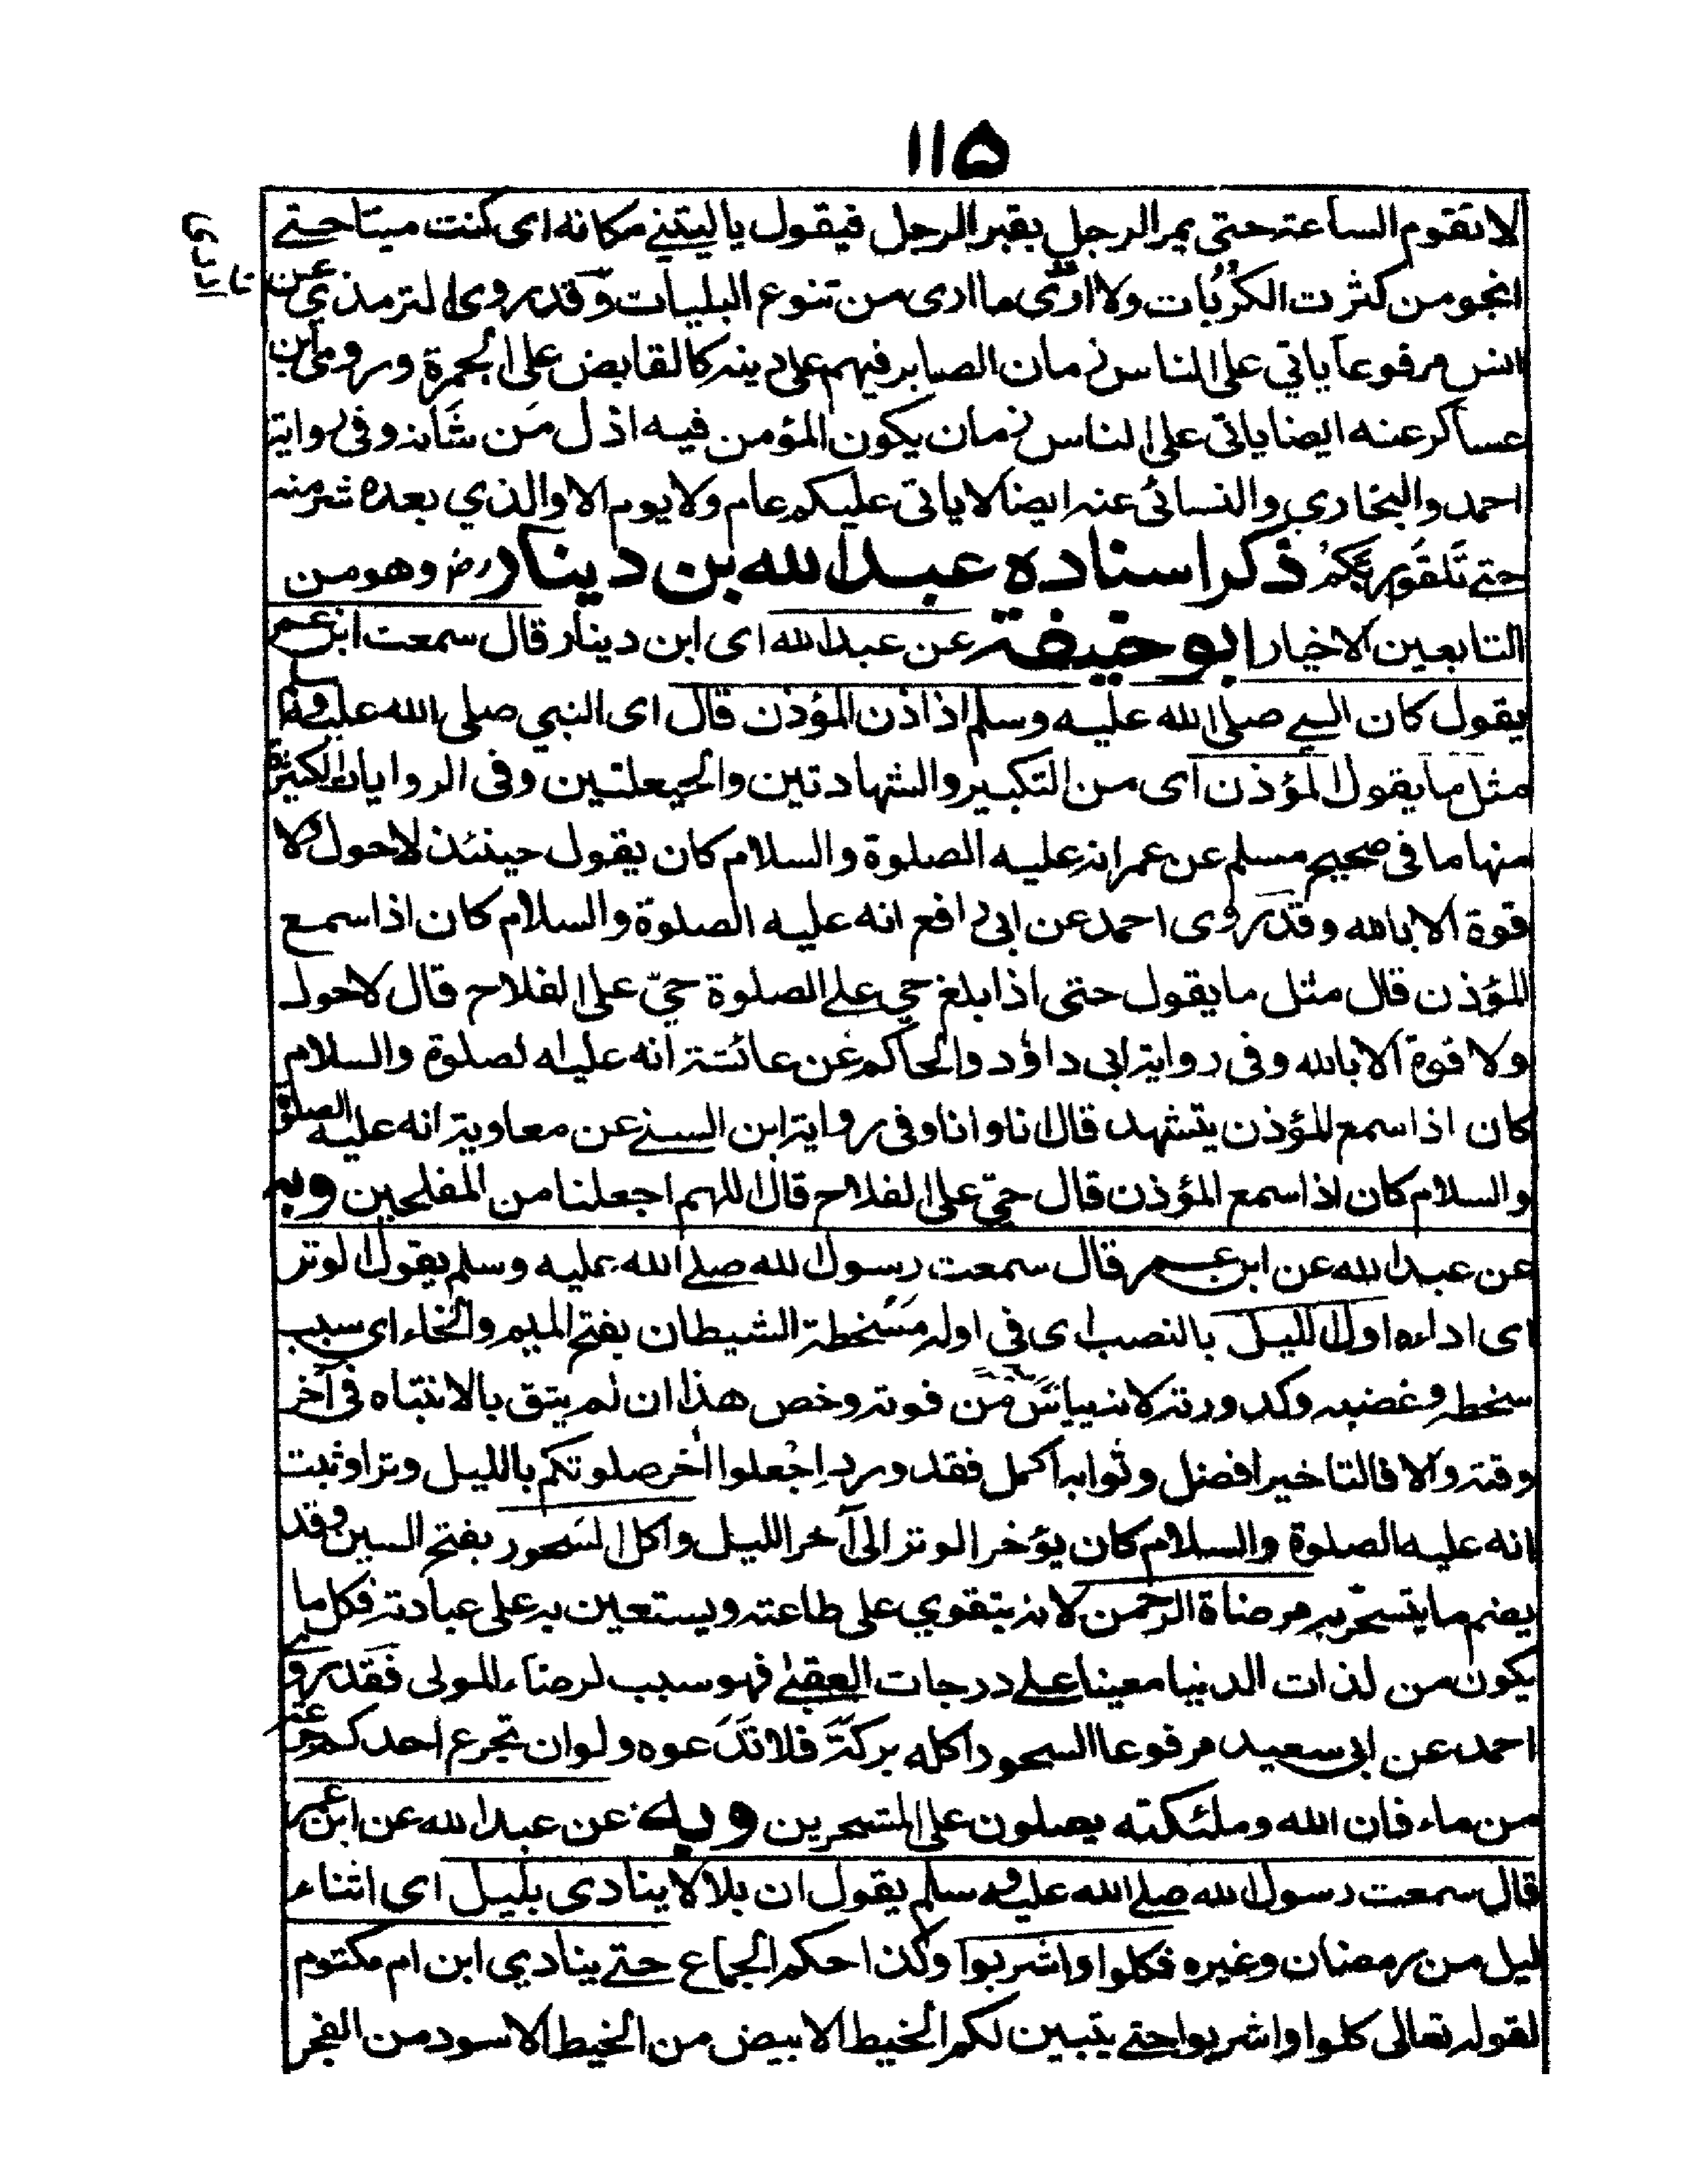 ١١٥
لا تقوم الساعة حتى يمر الرجل بقبر الرجل فيقول يا ليتني مكانه اى كنت ميتا حتى
انجو من كثرت الكربات ولا ارى ما ارى من تنوع البليات وقد روى الترمذي عن
انس مرفوعا ياتي على الناس زمان الصابر فيهم على دينه كالقابض على الجمرة وروى ابن
عساكر عنه ايضا ياتى على الناس زمان يكون المؤمن فيه اذل من شاته وفى رواية
احمد والبخاري والنسائى عنه ايضا لا ياتى عليكم عام ولا يوم الا والذي بعده شر منه
حتى تلقوا ربكم ذكر اسناده عبد الله بن دينار رض وهو من
التابعين الاخيار ابو حنيفة عن عبد الله اى ابن دينار قال سمعت ابن عمر
يقول كان النبي صلى الله عليه وسلم اذا اذن المؤذن قال اى النبي صلى الله عليه وسلم
مثل ما يقول المؤذن اى من التكبير والشهادتين والحيعلتين وفى الروايات الكثيرة
منها ما فى صحيح مسلم عن عمر انه عليه الصلوة والسلام كان يقول حينئذ لا حول ولا
قوة الا بالله وقد روى احمد عن ابى رافع انه عليه الصلوة والسلام كان اذا سمع
المؤذن قال مثل ما يقول حتى اذا بلغ حي على الصلوة حيّ على الفلاح قال لا حول
ولا قوة الا بالله وفى رواية ابى داؤد والحاكم عن عائشة انه عليه الصلوة والسلام
كان اذا سمع المؤذن يتشهد قال انا وانا وفى رواية ابن السني عن معاوية انه عليه الصلوة
والسلام كان اذا سمع المؤذن قال حيّ على الفلاح قال اللهم اجعلنا من المفلحين وبه
عن عبد الله عن ابن عمر قال سمعت رسول الله صلى الله عليه وسلم يقول الوتر
اى اداءه اول الليل بالنصب اى فى اوله مسخطة الشيطان بفتح الميم والخاء اى سبب
سخطه وغضبه وكدورته لانه ييأس من فوته وخص هذا ان لم يتق بالانتباه فى آخر
وقته والا فالتاخير افضل وثوابه اكمل فقد ورد اجعلوا آخر صلوتكم بالليل وترا وثبت
انه عليه الصلوة والسلام كان يؤخر الوتر الى آخر الليل واكل السحور بفتح السين وقد
يضم ما يتسحّر به مرضاة الرحمن لانه يتقوي على طاعته ويستعين به على عبادته فكل ما
يكون من لذات الدنيا معينا على درجات العقبى فهو سبب لرضاء المولى فقد روى
احمد عن ابى سعيد مرفوعا السحور اكله بركة فلا تدعوه ولو ان تجرع احدكم جرعة
من ماء فان الله وملئكته يصلون على المتسحرين وبه عن عبد الله عن ابن عمر
قال سمعت رسول الله صلى الله عليه وسلم يقول ان بلالا ينادى بليل اى اثناء
ليل من رمضان وغيره فكلوا واشربوا وكذا حكم الجماع حتى ينادي ابن ام مكتوم
لقوله تعالى كلوا واشربوا حتى يتبين لكم الخيط الابيض من الخيط الاسود من الفجر